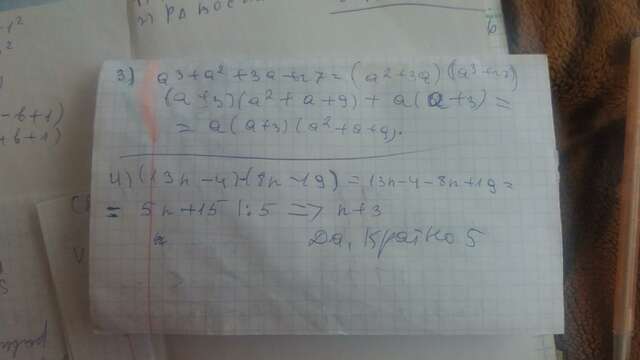 2) РАВОС
6
3) a³+a²+3a+27=(a²+3a)(a³+27)
(a+3)(a²+a+9)+a(a+3)=
= a(a+3)(a²+a+9).
-b+1)
+b+1)
4)(13n-4)-(8n-19)=13n-4-8n+19=
= 5n+15 |:5 => n+3
Да, кратно 5